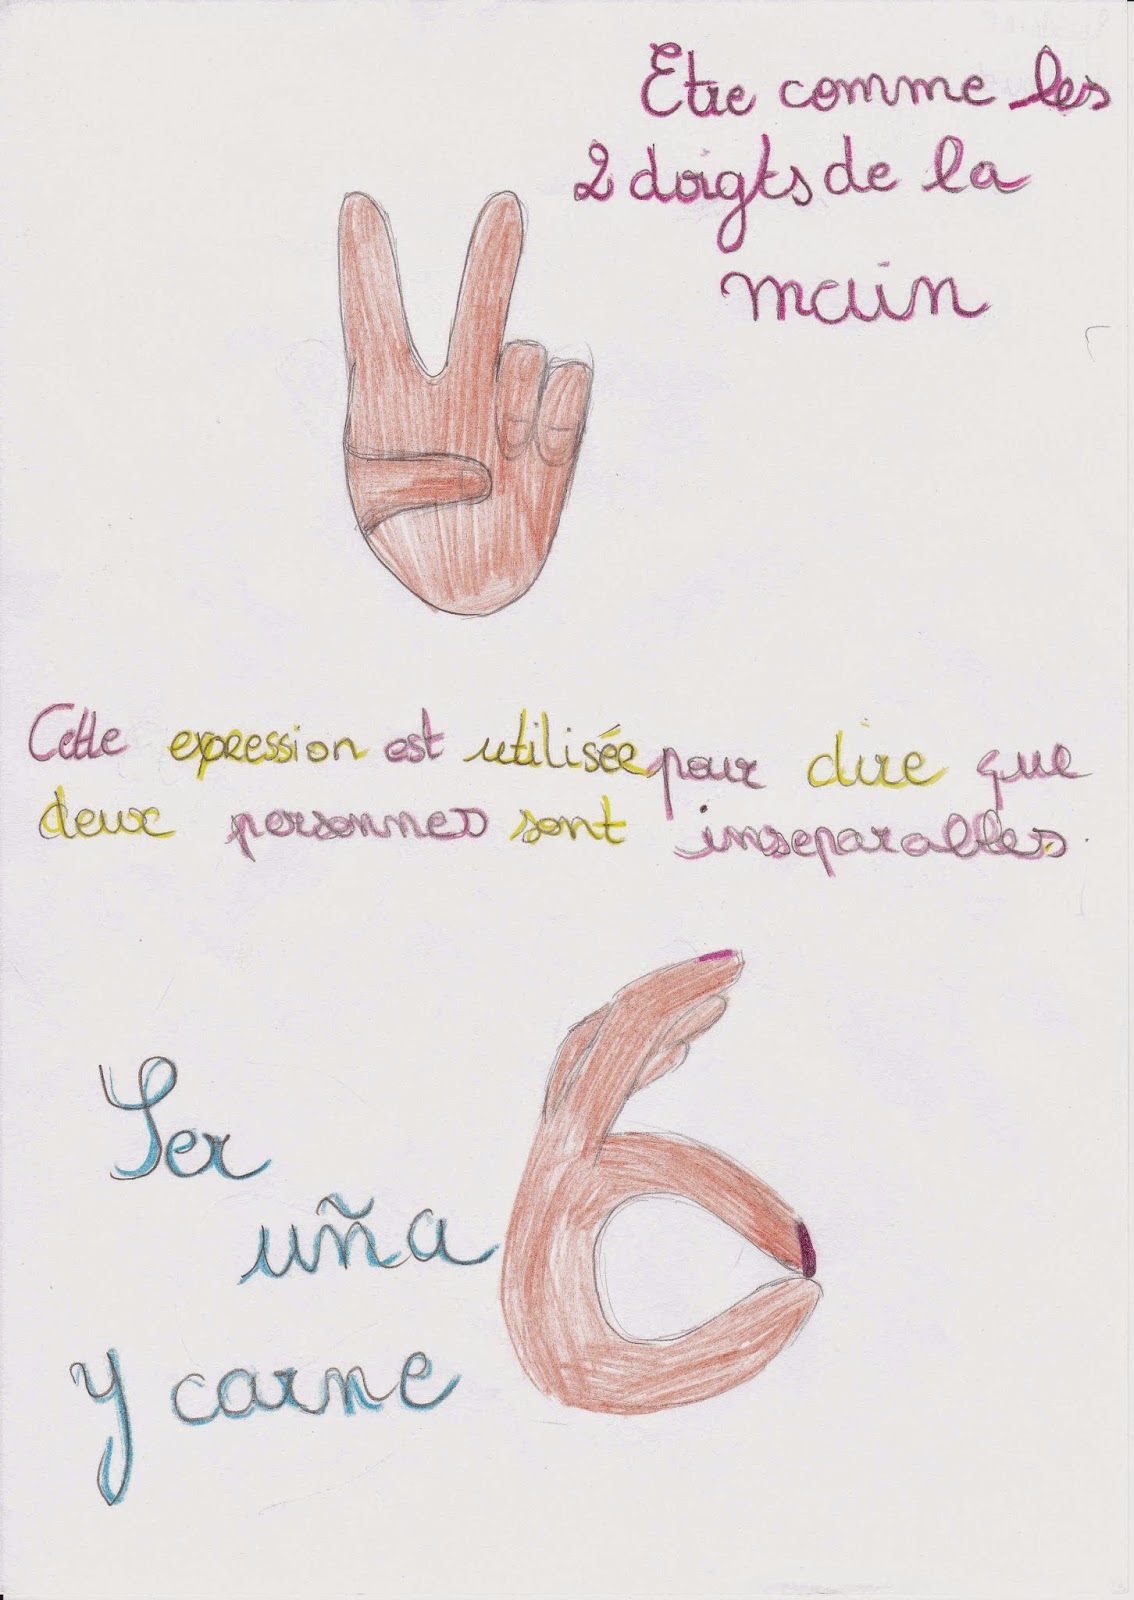 Etre comme les
2 doigts de la
main
Cette expression est utilisée pour dire que
deux personnes sont inseparables.
Ser
uña
y carne